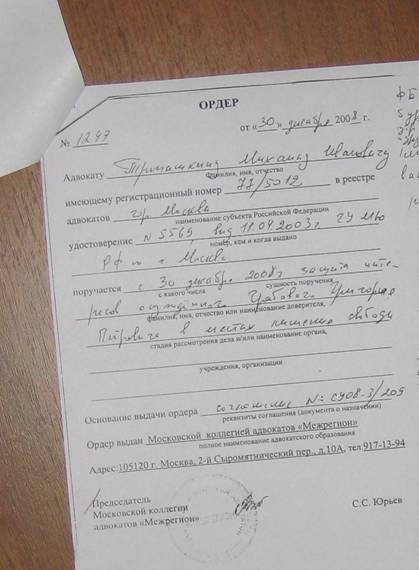 ОРДЕР
№ 1247 от «30» декабря 2008 г.
Адвокату Трепашкину Михаилу Ивановичу
фамилия, имя, отчество
имеющему регистрационный номер 77/5012 в реестре
адвокатов гор. Москва
наименование субъекта Российской Федерации
удостоверение N 5569, выд 11.04.2003г ГУ МЮ
номер, кем и когда выдано
РФ по г. Москва
поручается с 30 декабря 2008г защита инте-
с какого числа сущность поручения
ресов осужденного Грабового Григория
фамилия, имя, отчество или наименование доверителя,
Петровича в местах лишения свободы
стадия рассмотрения дела и/или наименование органа,
учреждения, организации
Основание выдачи ордера соглашение № СУ08-3/209
реквизиты соглашения (документа о назначении)
Ордер выдан Московской коллегией адвокатов «Межрегион»
полное наименование адвокатского образования
Адрес:105120 г. Москва, 2-й Сыромятнический пер., д.10А, тел.917-13-94
Председатель
Московской коллегии
адвокатов «Межрегион» С.С. Юрьев